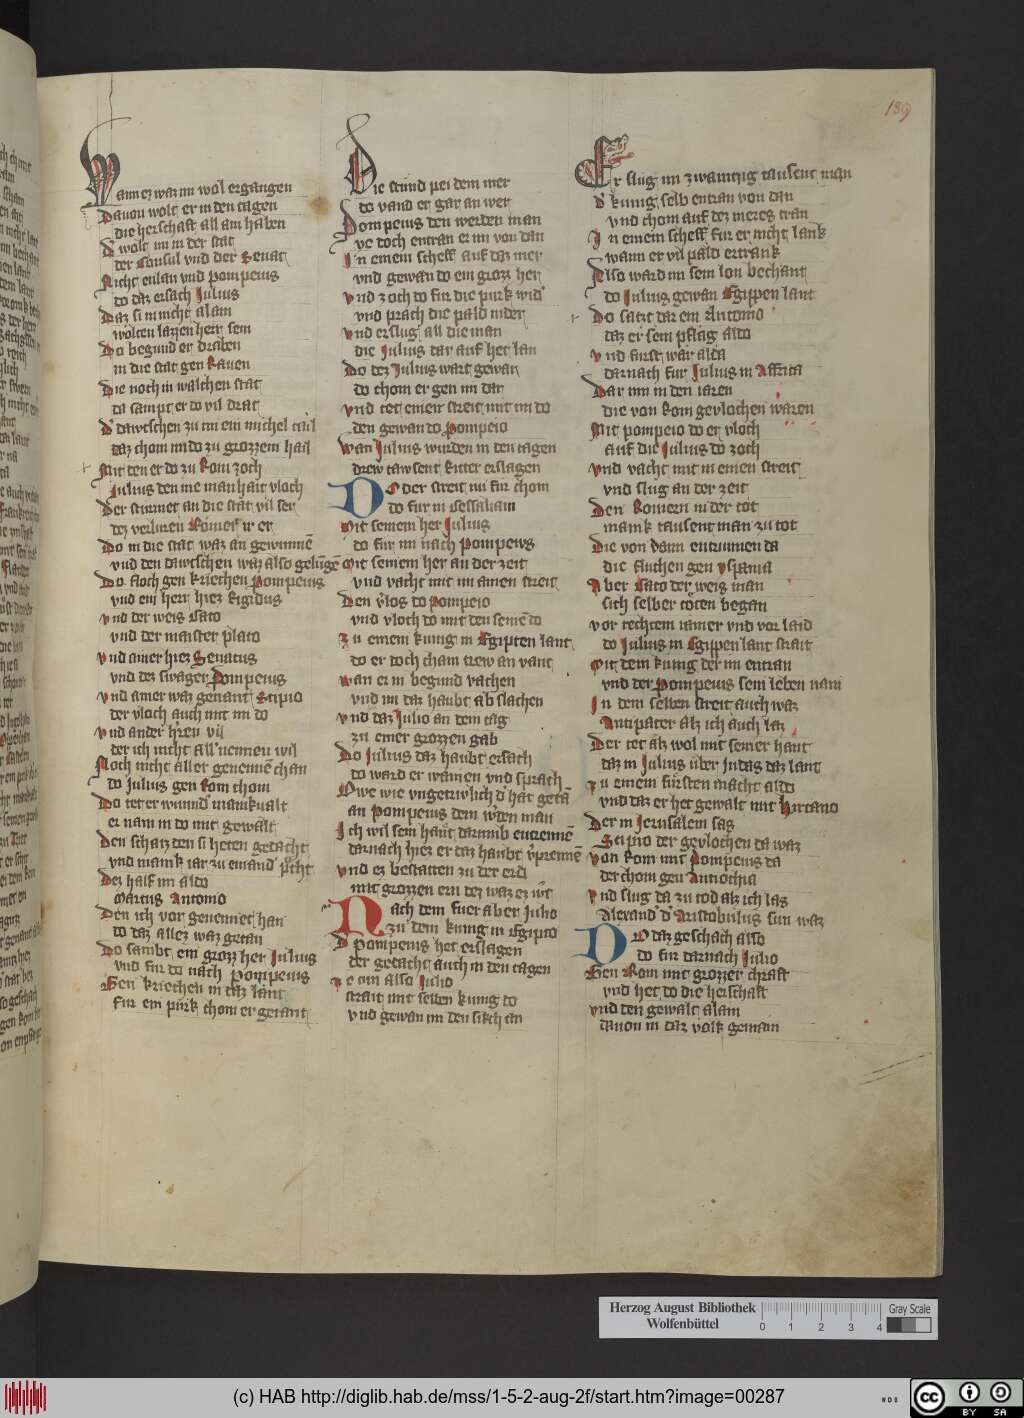 189
Wann ez waz im wol ergangen
Dauon wolt er in den tagen
die herschaft all am haben
D wolt im in der stat
der Consul vnd der Senat
Nicht enlan vnd Pompeius
do daz ersach Julius
Daz si in nicht alain
wolten lazzen herr sein
Do begund er draben
in die stat gen Rauen
Die noch in walchen stat
da sampt er do vil drat
D dawtschen zu im ein michel tail
daz chom im do zu grozzem hail
Mit den er do zu Rom zoch
Julius den nie man hait vloch
Der sturmet an die stat vil ser
dez verluren Romer ir er
Do in die stat waz an gewinnē
vnd den dawtschen waz also gelūgē
Do floch gen kriechen Pompeius
vnd ein herr hiez Rigidus
vnd der weis Cato
vnd der maister Plato
vnd ainer hiez Senatus
vnd dez swager Pompeius
vnd ainer waz genant Scipio
der vloch auch mit im do
vnd ander h'ren vil
der ich nicht all nennen wil
Noch nicht aller genennē chan
do Julius gen Rom chom
Do tet er wunnd' manikualt
er nam in do mit gewalt
Den schatz den si heten gedacht
vnd manik iar zu einand' p'cht
Dez half im aldo
Marcus Antonio
Den ich vor genennet han
do daz allez waz getan
Do sambt ein grozz her Julius
vnd fur do nach Pompeius
Gen kriechen in daz lant
fur ein purk chom er gerant
Die stund pei dem mer
do vand er gar an wer
Pompeius den werden man
ye doch entran er im von dan
In einem scheff auf daz mer
vnd gewan do ein grozz her
vnd zoch do fur die purk wid'
vnd prach die pald nider
vnd erslug all die man
die Julius dar auf het lan
Do dez Julius wart gewar
do chom er gen im dar
vnd tet einen streit mit im do
den gewan do Pompeio
Wan Julius wurden in den tagen
drew tawsent Ritter erslagen
Do der streit nu fur chom
do fur in Tessaliam
Mit seinem her Julius
do fur im nach Pompeius
Mit seinem her an der zeit
vnd vacht mit im ainen streit
Den v'los do Pompeio
vnd vloch do mit den seinē do
zu einem kunig in Egipten lant
do er doch cham trew an vant
Wan er in begund vachen
vnd im daz haubt ab slachen
vnd daz Julio an dem tag
zu einer grozzen gab
Do Julius daz haubt ersach
do ward er wainen vnd sprach
Owe wie vngetrwlich d' hat getā
an Pompeius dem w'den man
Ich wil sein haut darumb entrennē
darnach hiez er daz haubt v'prennē
vnd ez bestatten zu der erd
mit grozzen ern dez waz ez w't
Nach dem fuer aber Julio
zu dem kunig in Egipto
D Pompeius het erslagen
der gedacht auch in den tagen
Ze tun also Julio
strait mit selben kunig do
vnd gewan im den sikch an
Er slug im zwaintzig tausent man
D' kunig selb entran von dan
vnd chom auf dez meres tran
In einem scheff fur er nicht lank
wann er vil pald ertrank
Also ward im sein lon bechant
do Julius gewan Egippen lant
Do satzt dar ein Antonio
daz er sein pflag aldo
vnd furst war alda
darnach fur Julius in Affrica
Dar inn in den iaren
die von Rom gevlochen waren
Mit pompeio do er vloch
auf die Julius do zoch
vnd vacht mit in einen streit
vnd slug an der zeit
Den Romern nider tot
manik tausent man zu tot
Die von dann entrunnen da
die fluchen gen yspania
Aber Cato der weis man
sich selber toten began
vor rechtem iamer vnd vor laid
do Julius in Egippen lant strait
Mit dem kunig der im entran
vnd der Pompeius sein leben nam
In dem selben streit auch waz
Antipater alz ich auch laz
Der tet alz wol mit seiner hant
daz in Julius über Judas daz lant
zu einem fürsten macht aldo
vnd daz er het gewalt mit Hircano
Der in Jerusalem sas
Scipio der gevlochen da waz
von Rom mit Pompeius da
der chom gen Antiochia
vnd slug da zu tod alz ich las
Alexand' d' Aristobulus sun waz
Do daz geschach also
do fur darnach Julio
Gen Rom mit grozzer chraft
vnd het do die herschaft
vnd den gewalt alain
dauon in daz volk gemain
Herzog August Bibliothek
Wolfenbüttel
0 1 2 3 4
Gray Scale
(c) HAB http://diglib.hab.de/mss/1-5-2-aug-2f/start.htm?image=00287
WDB
cc BY SA